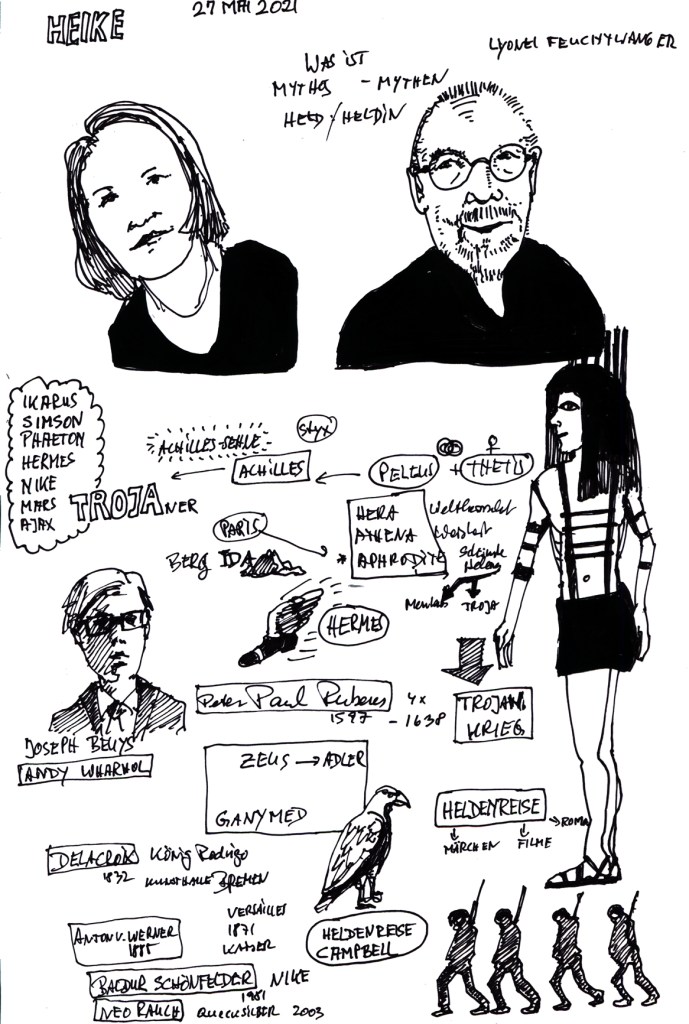 HEIKE
27 MAI 2021
LYONEL FEUCHTWANGER
WAS IST
MYTHOS - MYTHEN
HELD / HELDIN
IKARUS
SIMSON
PHAETON
HERMES
NIKE
MARS
AJAX
TROJANER
ACHILLES-SEHNE
STYX
ACHILLES
PELEUS + THETIS
PARIS
BERG IDA
* HERA
ATHENA
APHRODITE
Weltherrschaft
Weisheit
Schönste
Helena
Menelaos
TROJA
HERMES
Peter Paul Rubens 4x
1597 - 1638
TROJAN.
KRIEG
JOSEPH BEUYS
ANDY WHARHOL
ZEUS → ADLER
GANYMED
HELDENREISE
MÄRCHEN
FILME
ROMA
DELACROIX König Rodrigo
1832 KUNSTHALLE BREMEN
ANTON V. WERNER
1885
VERSAILLES
1871
KAISER
HELDENREISE
CAMPBELL
BALDUR SCHÖNFELDER NIKE
1981
NEO RAUCH QUECKSILBER 2003